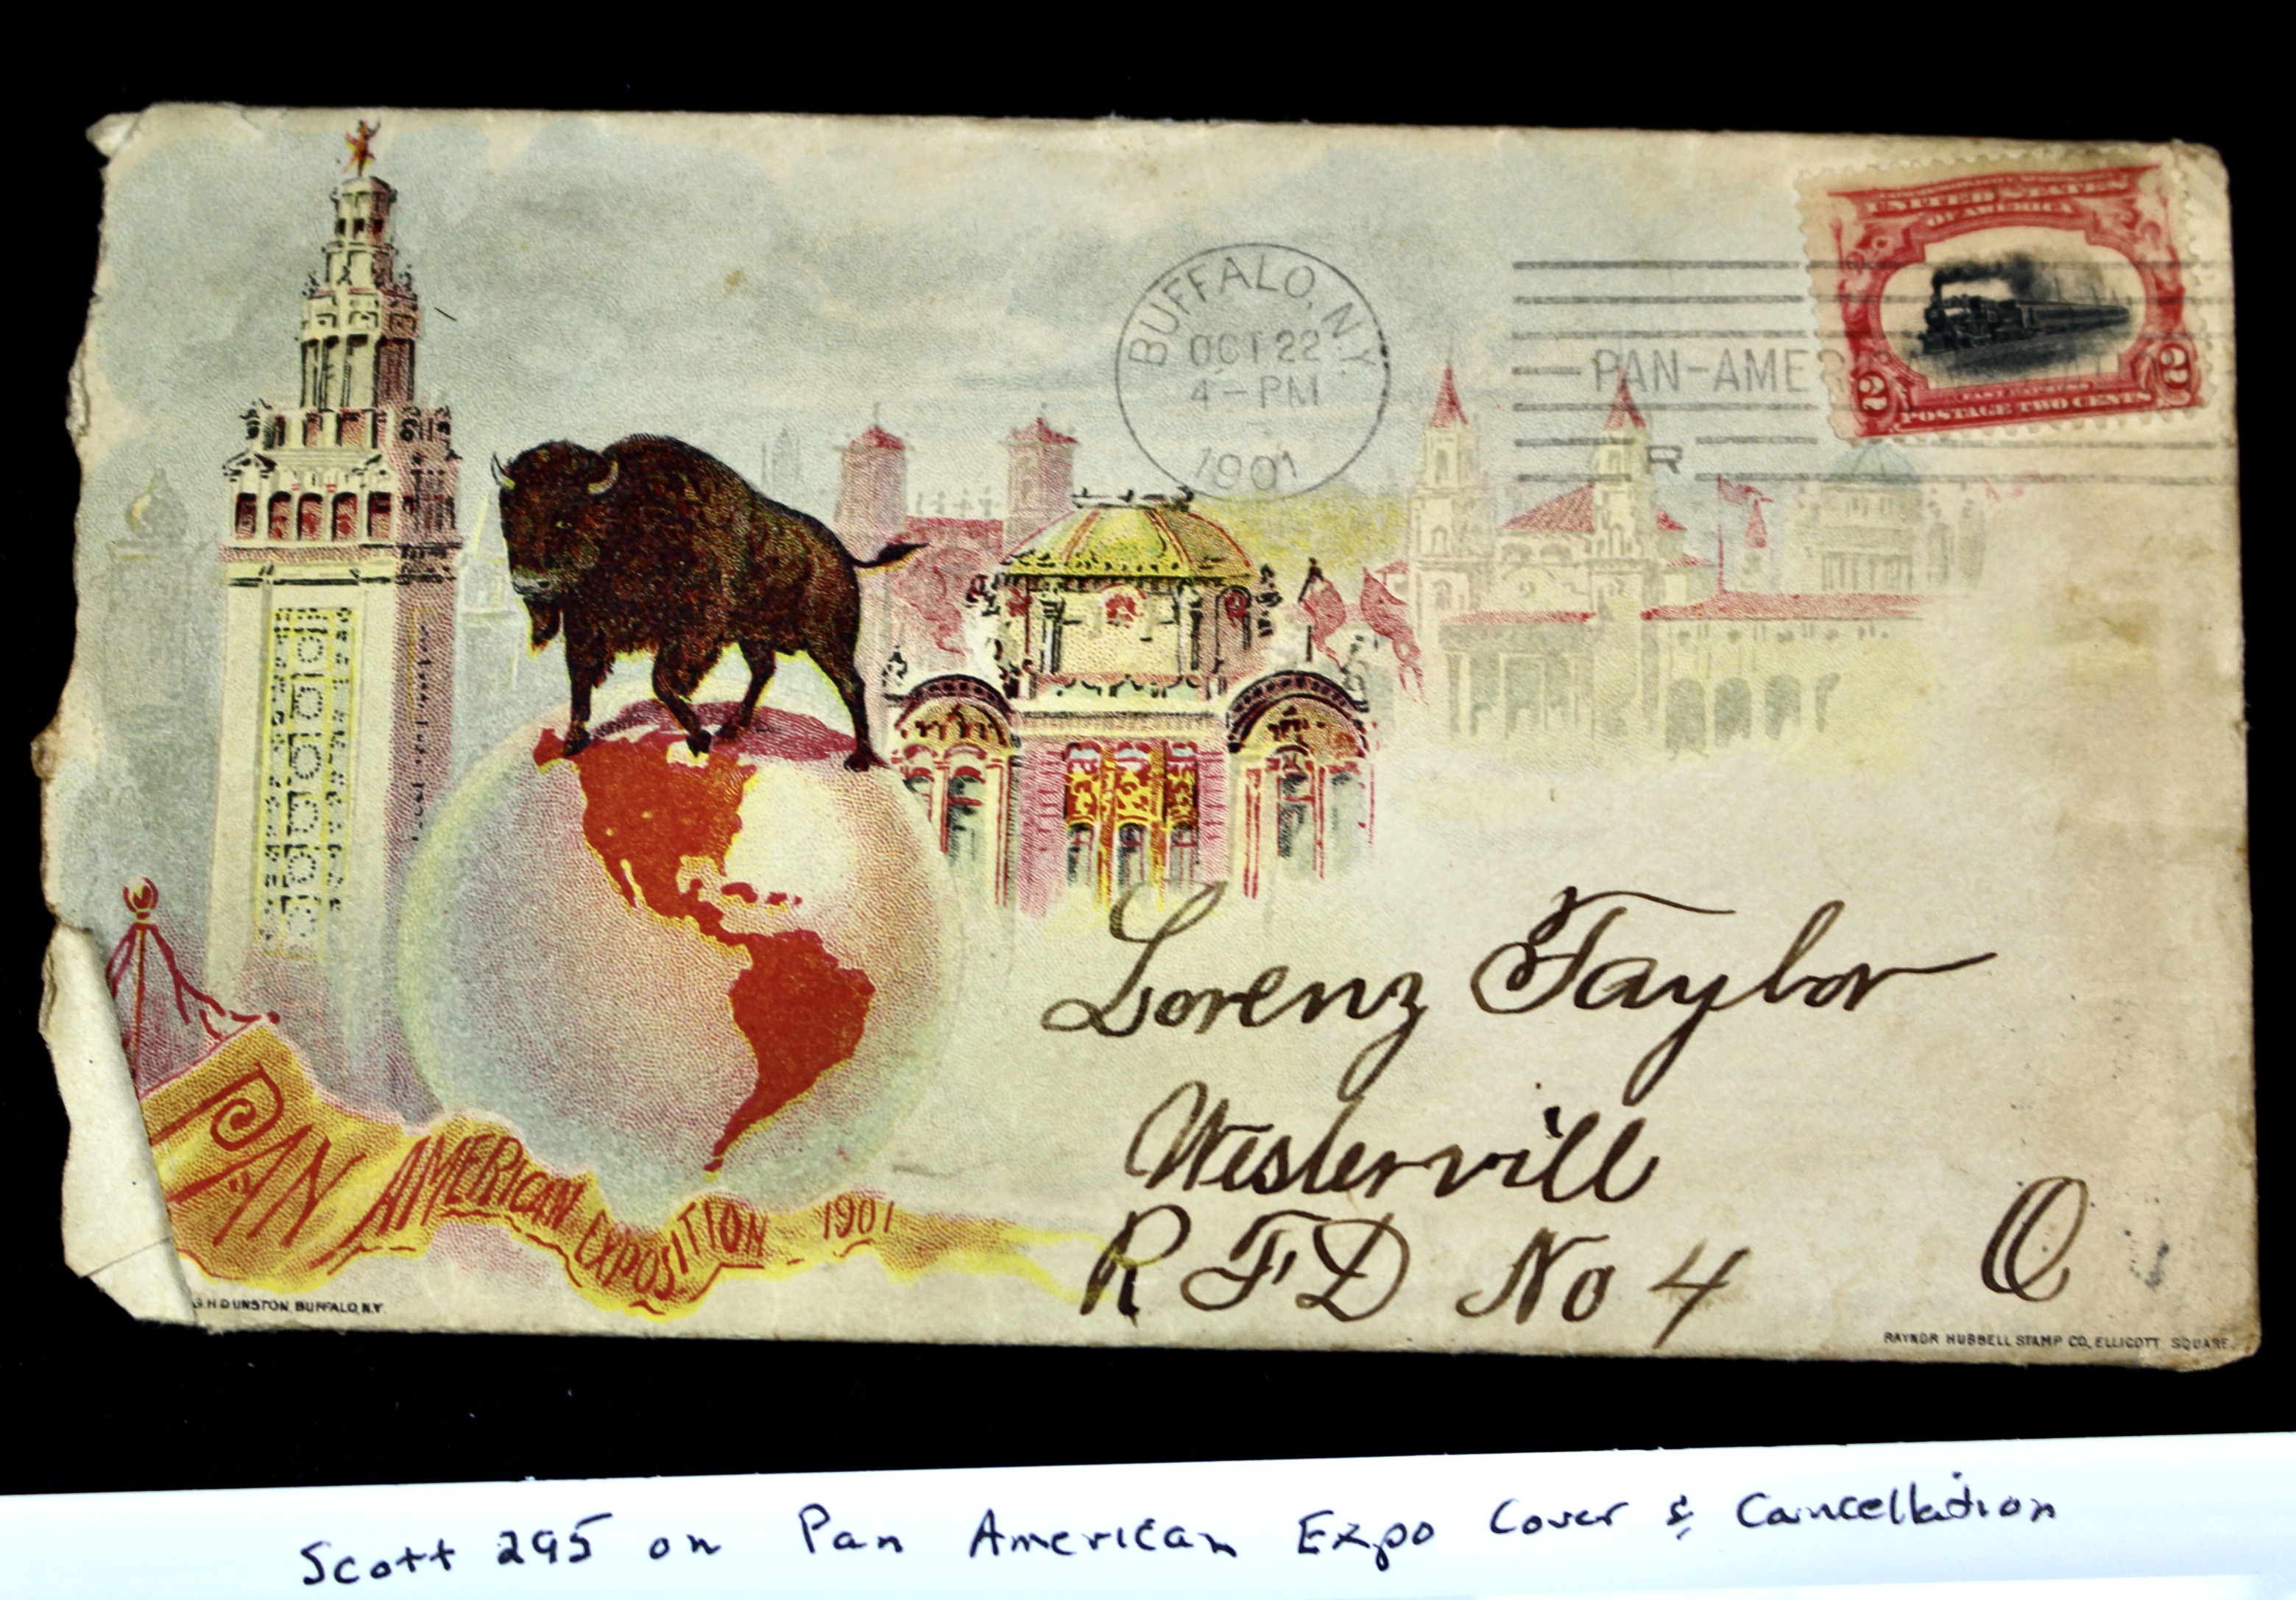 UNITED STATES
OF AMERICA
FAST EXPRESS
2 2
POSTAGE TWO CENTS
BUFFALO, N.Y.
OCT 22
4-PM
1901
PAN-AME
R
Lorenz Taylor
Westervill
R F D No 4 O
PAN AMERICAN EXPOSITION 1901
G.H. DUNSTON, BUFFALO, N.Y.
RAYNOR HUBBELL STAMP CO, ELLICOTT SQUARE.
Scott 295 on Pan American Expo Cover & Cancellation